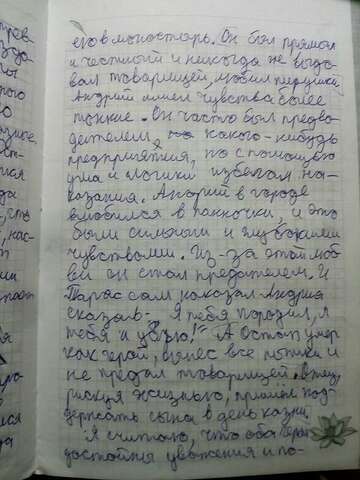 его в монастырь. Он был прямой
и честный и никогда не выда-
вал товарищей, любил пирушки.
Андрий имел чувства более
тонкие. Он часто был предво-
дителем какого-нибудь
предприятия, но с помощью
ума и логики избегал на-
казания. Андрий в городе
влюбился в панночку, и это
были сильными и глубокими
чувствами. Из-за этой люб-
ви он стал предателем. И
Тарас сам наказал Андрия
сказав - "Я тебя породил, я
тебя и убью!" А Остап умер
как герой, вынес все пытки и
не предал товарищей.
рискуя жизнью, пришёл под-
держать сына в день казни.
Я считаю, что оба героя
достойны уважения и по-